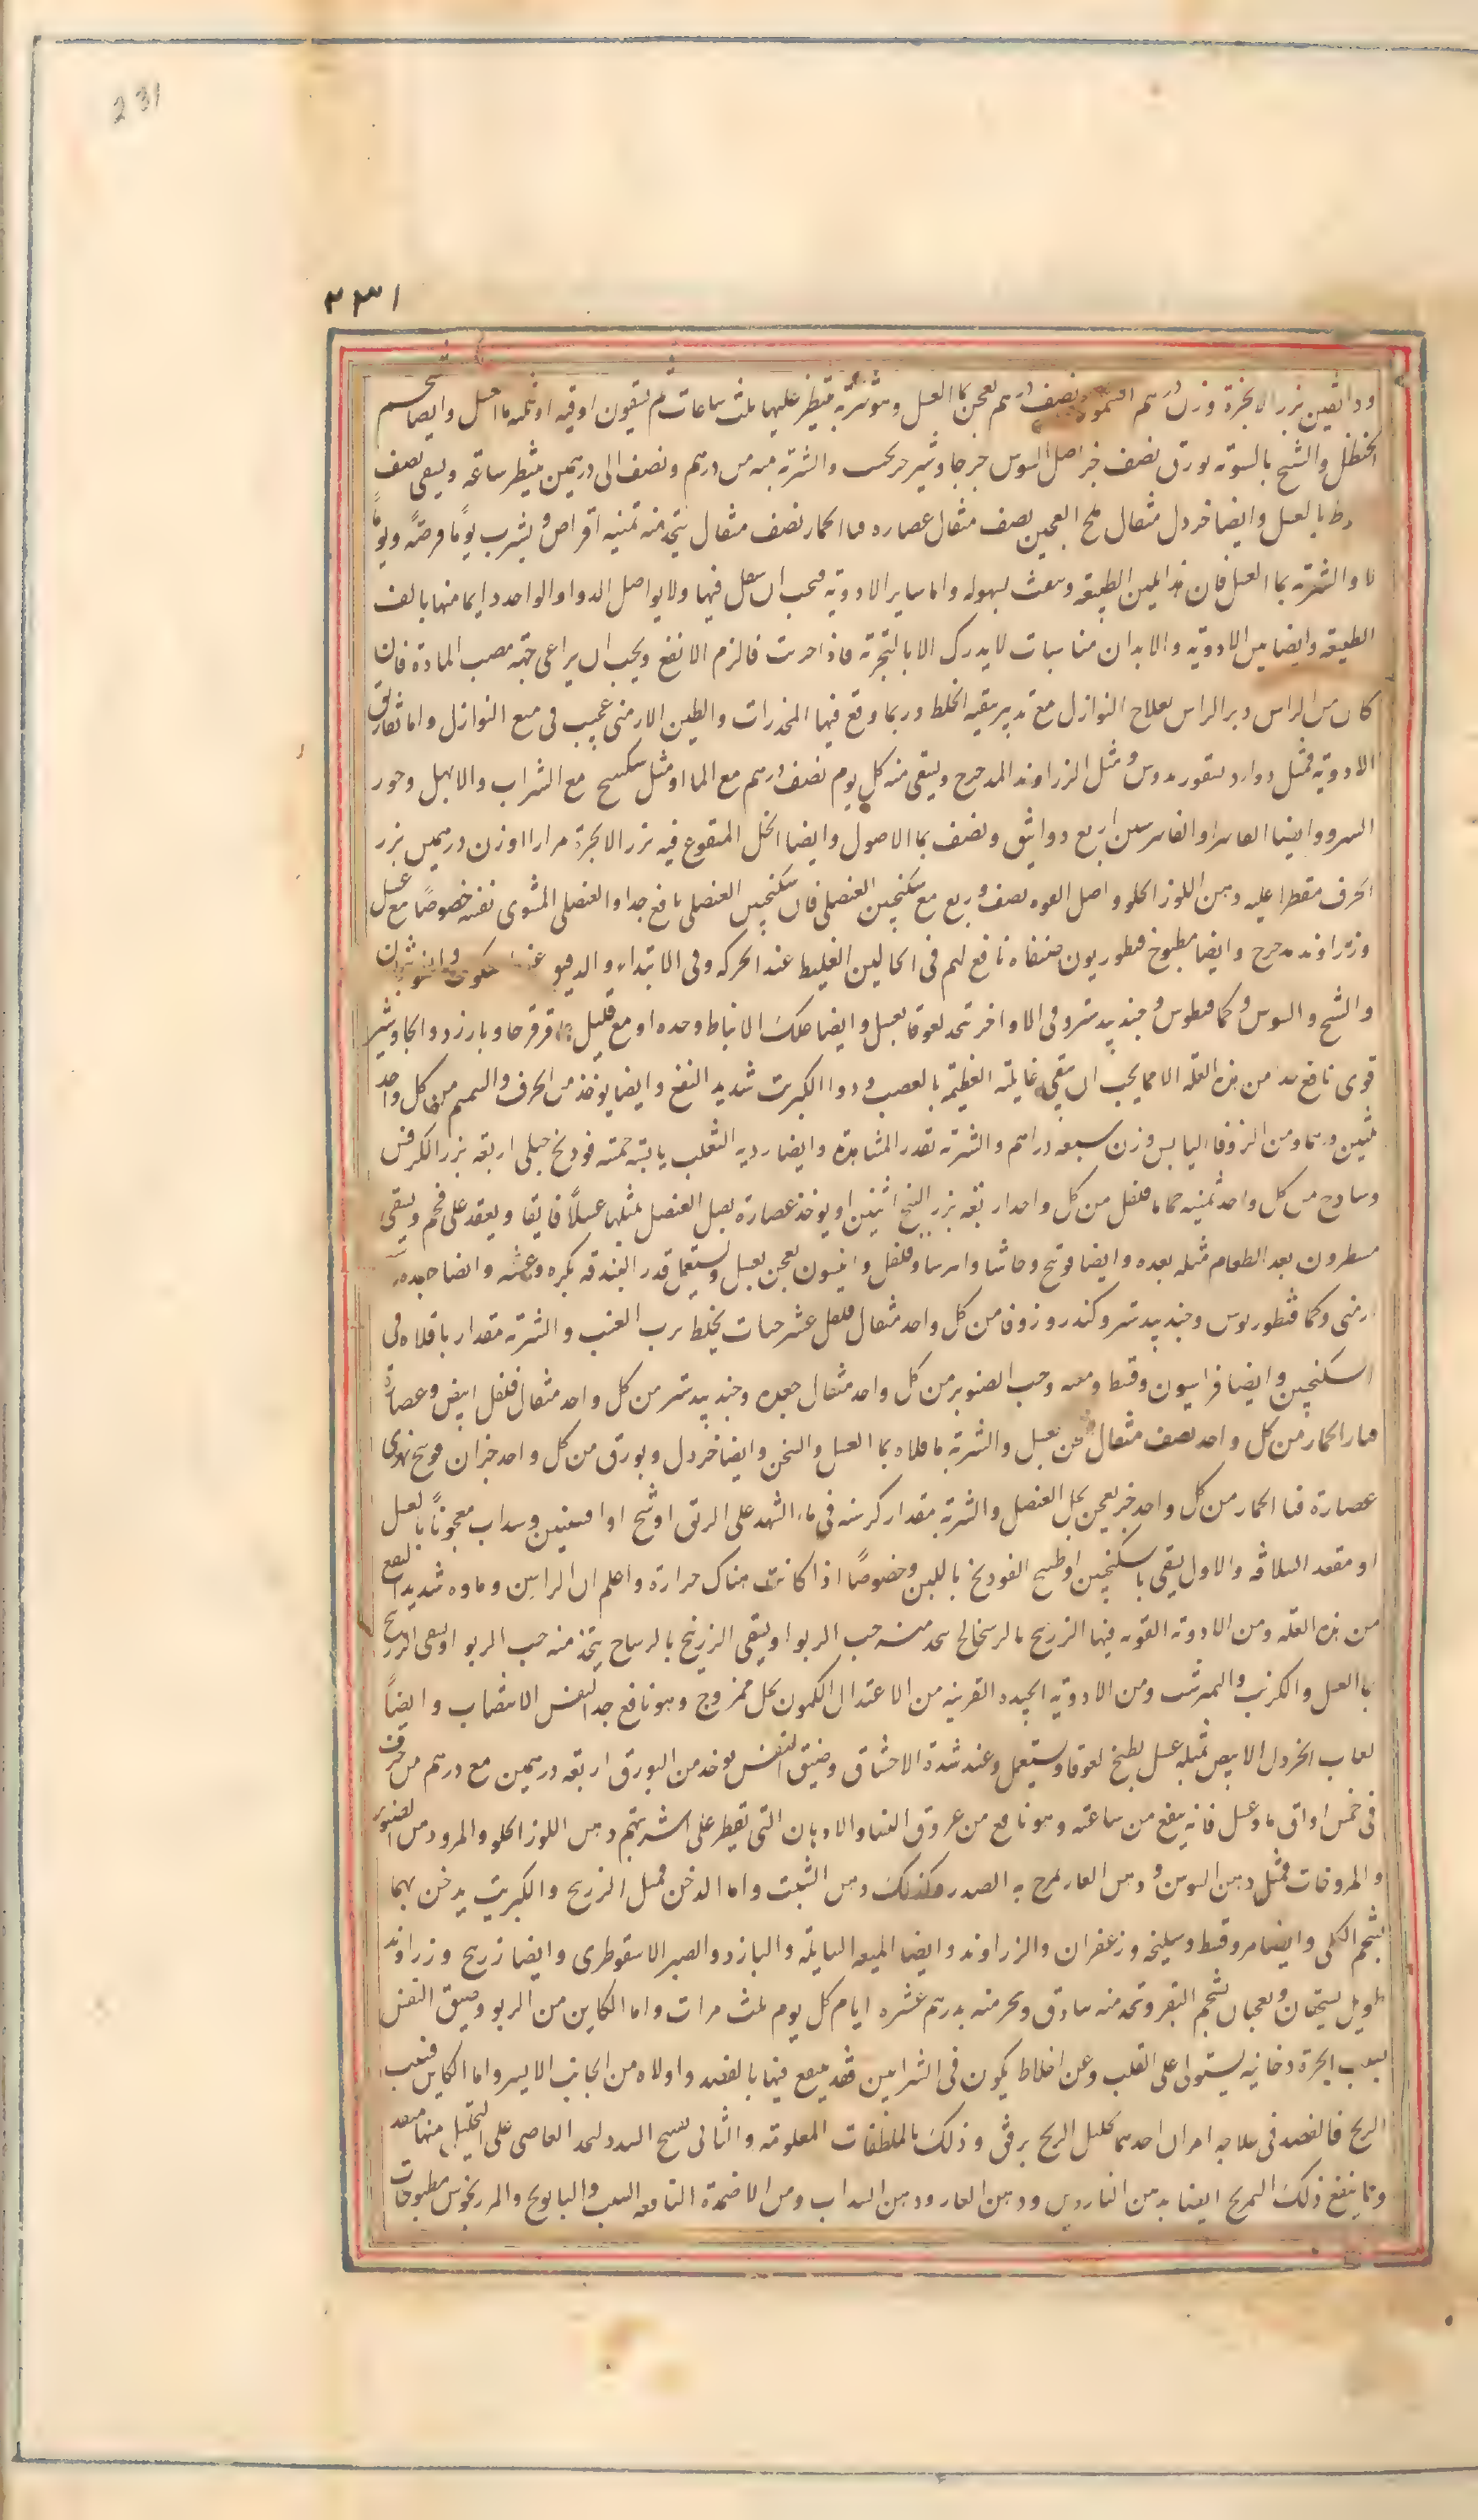 231
٢٣١
ودانقين بزر الانجرة وزن درهم افتيمون نصف درهم يعجن بماء العسل وهو شربة ينتظر عليها ثلث ساعات ثم يسقون اوقية او ثلثه ماء العسل وايضا شحم
الحنظل والشيح بالسوية بورق نصف جزء اصل السوس جزء جاوشير والشربة منه من درهم ونصف الى درهمين ينتظر ساعة ويسقى نصف
رطل ماء العسل وايضا خردل مثقال ملح العجين نصف مثقال عصاره قثاء الحمار نصف مثقال يتخذ منه ثمنيه اقراص ويشرب يوما قرصة ويوما
لا والشربة بماء العسل فان هذا يلين الطبيعة وينفث بسهوله واما ساير الادوية فيجب ان ينتقل فيها ولا يواصل الدواء الواحد دايما منها يالف
الطبيعة وايضا بين الادوية والابدان مناسبات لا يدرك الا بالتجربة فاذا جربت فالزم الانفع ويجب ان يراعى جهة مصب المادة فان
كان من الراس دبر الراس بعلاج النوازل مع تدبير تنقية الخلط وربما وقع فيها المخدرات والطين الارمنى عجيب فى منع النوازل واما تفاريق
الادوية فمثل دواء ديسقوريدوس ومثل الزراوند المدحرج ويسقى منه كل يوم نصف درهم مع الماء او مثل سكبينج مع الشراب والابهل وجوز
السرو وايضا الفاشرا والفاشرستين اربع دوانيق ونصف بماء الاصول وايضا الخل المنقوع فيه بزر الانجرة مرارا او وزن درهمين بزر
الحرف مقطرا عليه دهن اللوز الحلو واصل الفوه نصف وربع مع سكنجبين العنصلى فان سكنجبين العنصلى نافع جدا والعنصلى المشوى نفسه خصوصا مع عسل
وزراوند مدحرج وايضا مطبوخ قنطوريون بصنفاه نافع لهم فى الحالين الغليظ عند الحركة وفى الابتداء والدقيق
والشيح والسوس وكمافيطوس وجندبيدستر وفى الاواخر يتخذ لعوقا بعسل وايضا علك الانباط وحده او مع قليل عاقرقرحا وبارزد والجاوشير
قوى نافع من هذه العلة الا مما يجب ان يتقى غايلته العظيمة بالعصب ودواء الكبريت شديد النفع وايضا يوخذ من الحرف والسمسم من كل واحد
ثلثين درهما ومن الزوفا اليابس وزن سبعه دراهم والشربة بقدر المشاهدة وايضا ريه الثعلب يابسة خمسة فودنج جبلى اربعه بزر الكرفس
وساذج من كل واحد ثمنيه حماما فلفل من كل واحد اربعة بزر البنج اثنين او يوخذ عصارة بصل العنصل مثلها عسلا فايقا ويعقد على فحم ويسقى
مسطرون بعد الطعام مثله بعده وايضا فوتنج وحاشا وايرسا وفلفل وانيسون يعجن بعسل ويستعمل قدر البندقة بكره وعشيه وايضا جعده
ارمنى وكمافيطوس وجندبيدستر وكندر وزوفا من كل واحد مثقال فلفل عشر حبات يخلط برب العنب والشربة مقدار باقلاه فى
السكنجبين وايضا فراسيون وقسط وميعه وحب الصنوبر من كل واحد مثقال جعده وجندبيدستر من كل واحد مثقال فلفل ابيض وعصارة
قثاء الحمار من كل واحد نصف مثقال يعجن بعسل والشربة باقلاه بماء العسل والسخن وايضا خردل وبورق من كل واحد جزءان فوتنج نهرى
عصارة قثاء الحمار من كل واحد جزء يعجن بخل العنصل والشربة مقدار كرسنه فى ماء الشهد على الريق او شيح او افسنتين وسداب معجونا بعسل
او مقعد السلاقه والاول يسقى بالسكنجبين او طبيخ الفودنج باللبن وخصوصا اذا كانت هناك حرارة واعلم ان الراسن وماوه شديدا النفع
من هذه العلة ومن الادوية القويه فيها الزرنيخ بالريتيانج يتخذ منه حب الربو او يسقى الزرنيخ بالرسياح يتخذ منه حب الربو او يسقى الزرنيخ
بماء العسل والكرنب والنمرشت ومن الادوية الجيده القريبه من الاعتدال الكمون بخل ممزوج وهو نافع جدا لنفس الانتصاب وايضا
لعاب الخردل الابيض بمثله عسل يطبخ لعوقا ويستعمل وعند شدة الاختناق وضيق النفس يوخذ من البورق اربعه درهمين مع درهم من حرف
فى خمس اواق ماء وعسل فانه ينفع من ساعته وهو نافع من عروق النسا والادهان التى تقطر على اشربتهم دهن اللوز الحلو والمر ودهن الصنوبر
والمروخات فمثل دهن السوسن ودهن الغار يمرخ به الصدر وكذلك دهن الشبت واما الدخن فمثل الزرنيخ والكبريت يدخن بهما
بشحم الكلى وايضا مر وقسط وسليخه وزعفران والزراوند وايضا الميعه السايلة والبارزد والصبر الاسقوطرى وايضا زرنيخ وزراوند
طويل يسحقان ويعجنان بشحم البقر ويتخذ منه بنادق ويبخر منه بدرهم عشره ايام كل يوم ثلث مرات واما الكاين من الربو وضيق النفس
بسبب ابخرة دخانيه يستولى على القلب وعن اخلاط يكون فى الشرايين فقد ينفع فيها بالفصد واولاه من الجانب الايسر واما الكاين بسبب
الريح فالقصد فى علاجه امران احدهما تحليل الريح برفق وذلك بالملطفات المعلومة والثانى تفتيح السدد ليجد العاصى على التحليل منها منفذ
ومما ينفع ذلك التمريخ ايضا بدهن الناردين ودهن الغار ودهن السداب ومن الاضمدة النافعه الشبت والبابونج والمرزنجوش مطبوخات